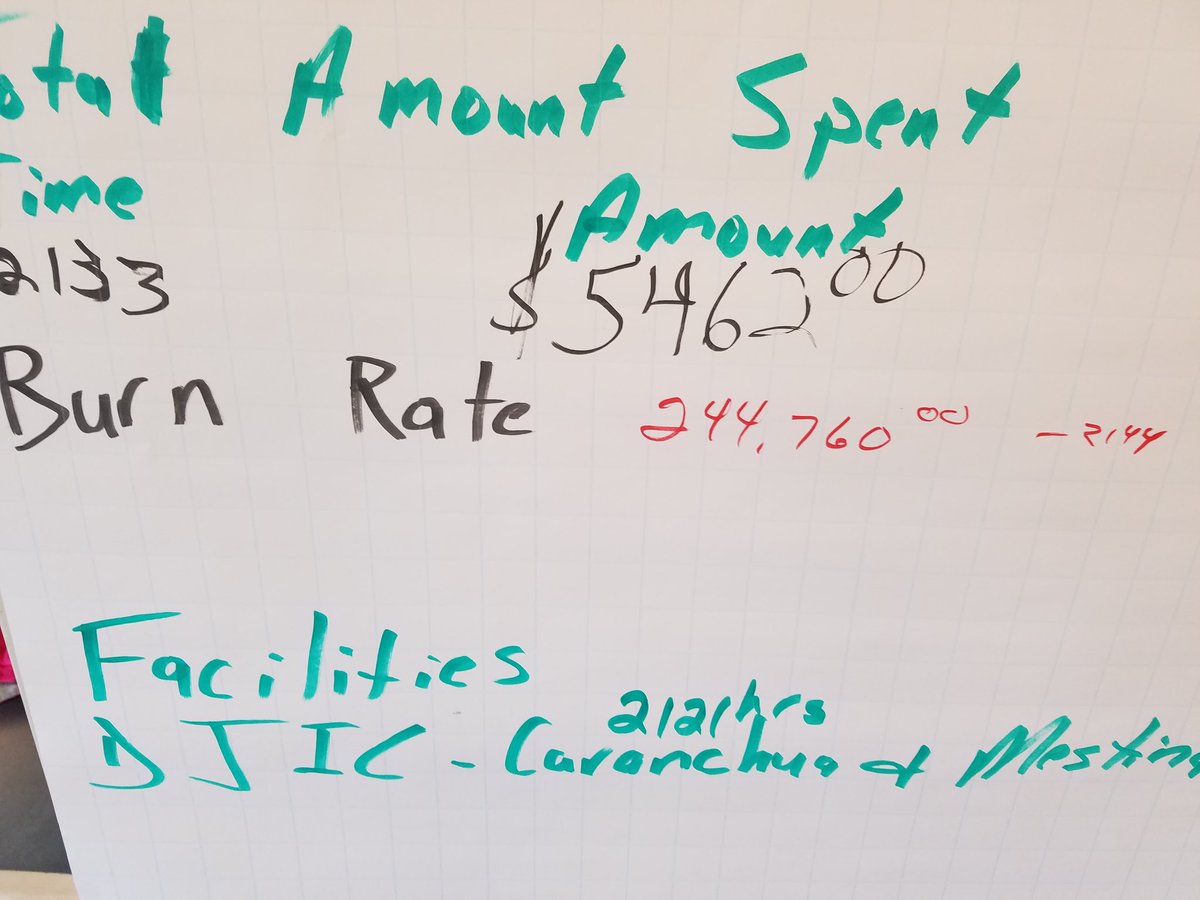 Total Amount Spent
Time Amount
2133 $5462.00
Burn Rate 244,760.00 - 2144
Facilities
2121hrs
JIC - Caranchua & Mestina